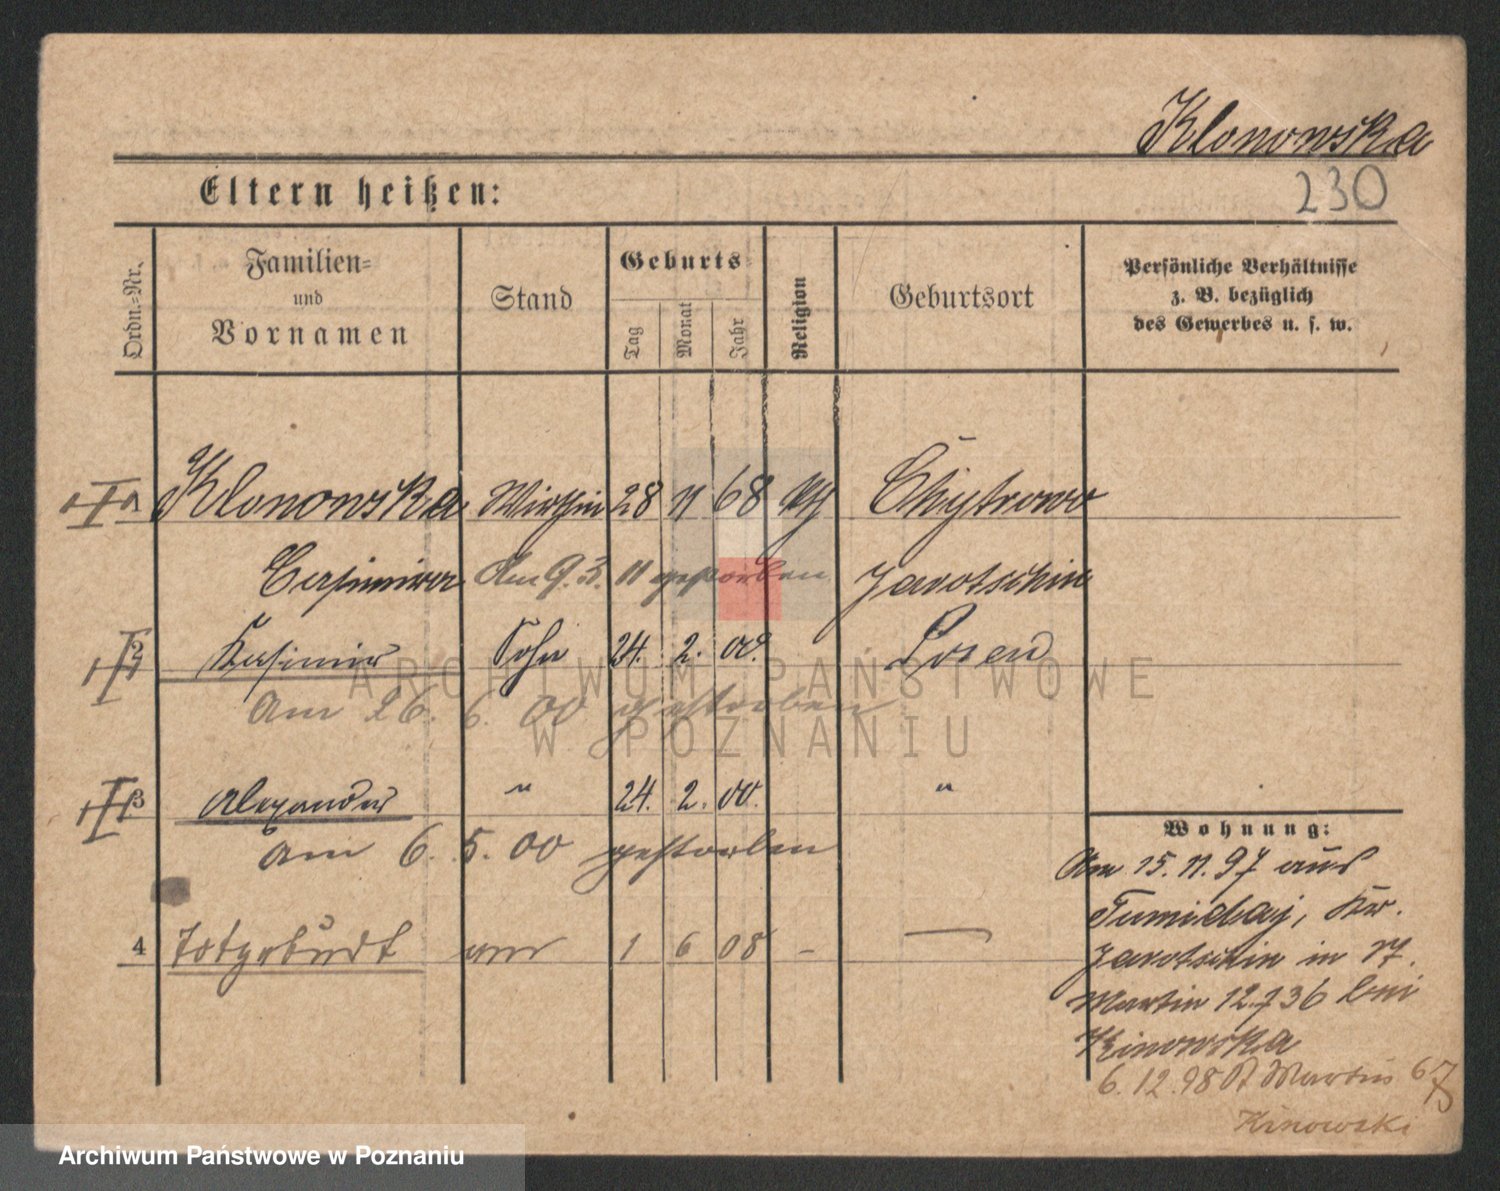 Klonowska
230
Eltern heißen:
Ordn.-Nr.
Familien-
und
Vornamen
Stand
Geburts
Tag
Monat
Jahr
Religion
Geburtsort
Persönliche Verhältnisse
z. B. bezüglich
des Gewerbes u. s. w.
1 Klonowska Wirthin 28 11 68 Chytrowo
Casimira Am 9. 3. 11 gestorben Jarotschin
2 Kasimir Sohn 24. 2. 00. Posen
Am 26. 6. 00 gestorben
3 Alexander " 24. 2. 00. "
Am 6. 5. 00 gestorben
4 Totgeburt 1 6 08 -
Wohnung:
Am 15. 11. 97 aus
Kr.
Jarotschin in
Martin bei
6. 12. 98 St Martin 67
ARCHIWUM PAŃSTWOWE
W POZNANIU
Archiwum Państwowe w Poznaniu